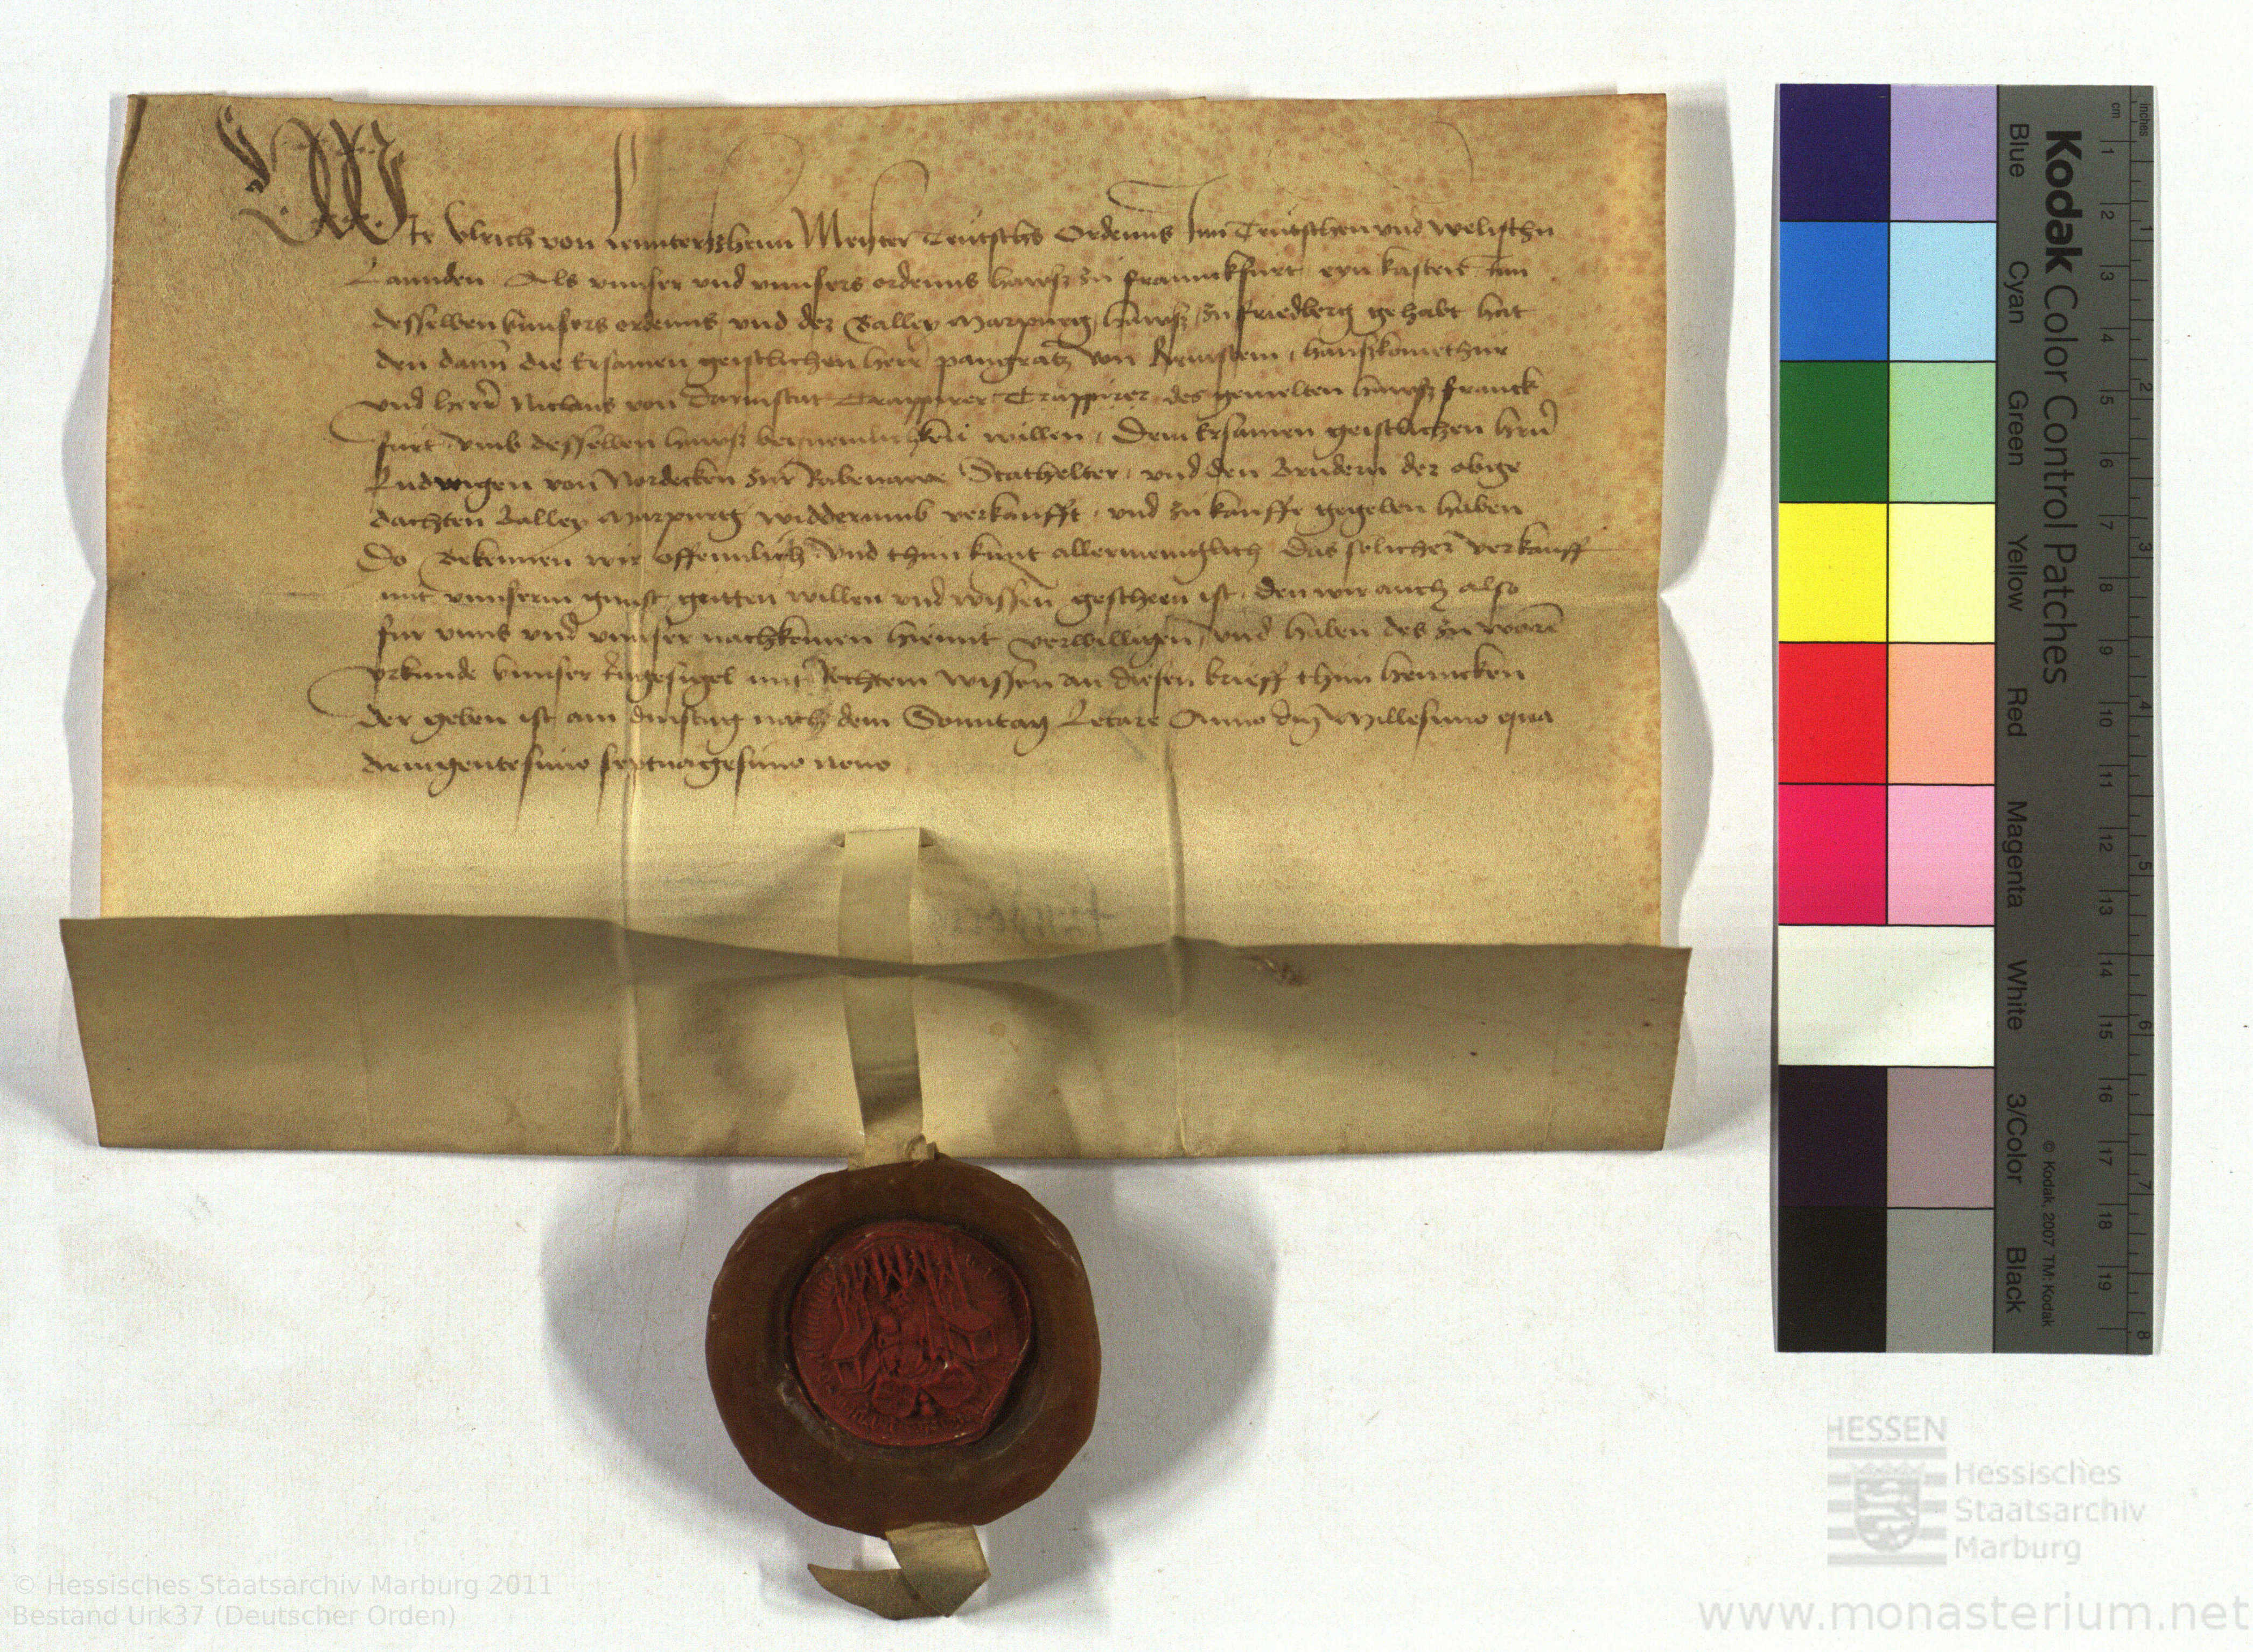 Wir Ulrich von Lenntersszheim Meyster Teutschs Ordenns Inn Teutschen vnd welischn
Lannden Als vnnser vnd vnnsers ordenns hawsz zu frannckfurt eyn kasten Inn
desselben vnnsers ordenns vnd der Balley Marpurg hawsz zu friedberg gehabt hat
den dann die Ersamen geistlichen herr pangratz von hauszkomethur
vnd herr Niclaus von Darmstat Trappirer Trappirer des gemelten hawsz franck
furt vmb desselben hawsz willen Dem Ersamen geistlichen hrn
Ludwigen von Nordecken zur Rabenawe Stathelter vnd den Brudern der obge
dachten Balley Marpurg widderumb verkaufft vnd zu kauffe gegeben haben
Do Bekennen wir offennlich vnd thun kunt allermeniglich Das solicher verkauff
mit vnnserm gunst gutten willen vnd wissen gescheen ist den wir auch also
fur vnns vnd vnnser nachkomen hiemit verwilligen vnd haben des zu ware
vrkunde vnnser Ingesigel mit Rechtem wissen an diesen brieff thun henncken
Der geben ist am dinstag nach dem Sonntag Letare Anno dni Millesimo qua
dringentesimo septuagesimo nono
Kodak Color Control Patches
© Kodak, 2007 TM: Kodak
Blue Cyan Green Yellow Red Magenta White 3/Color Black
cm 1 2 3 4 5 6 7 8 9 10 11 12 13 14 15 16 17 18 19
inches 1 2 3 4 5 6 7 8
HESSEN
Hessisches
Staatsarchiv
Marburg
© Hessisches Staatsarchiv Marburg 2011
Bestand Urk37 (Deutscher Orden)
www.monasterium.net